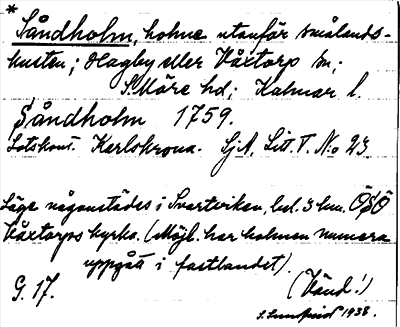 * Såndholm, holme utanför smålands-
kusten; Hagby eller Växtorp sn;
S. Möre hd; Kalmar l.
Såndholm 1759.
Lotskont. Karlskrona. SjA, Litt. T. No 23
Läge någonstädes i Svartviken, bel. 3 km. ÖSÖ
Växtorps kyrka. (Möjl. har holmen numera
uppgått i fastlandet).
G. 17. (Vänd!)
1938.